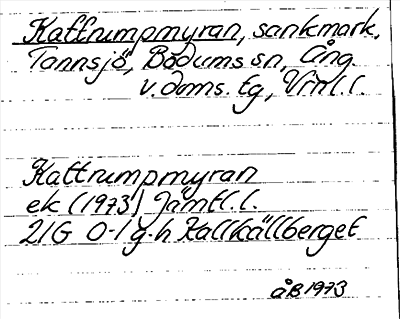 Kattrumpmyran, sankmark,
Tannsjö, Bodums sn, Ång.
v. doms. tg, Vrnl. l.
Kattrumpmyran
ek (1973) Jämtl. l.
21G 0-1 g-h Kallkällberget
åB 1973